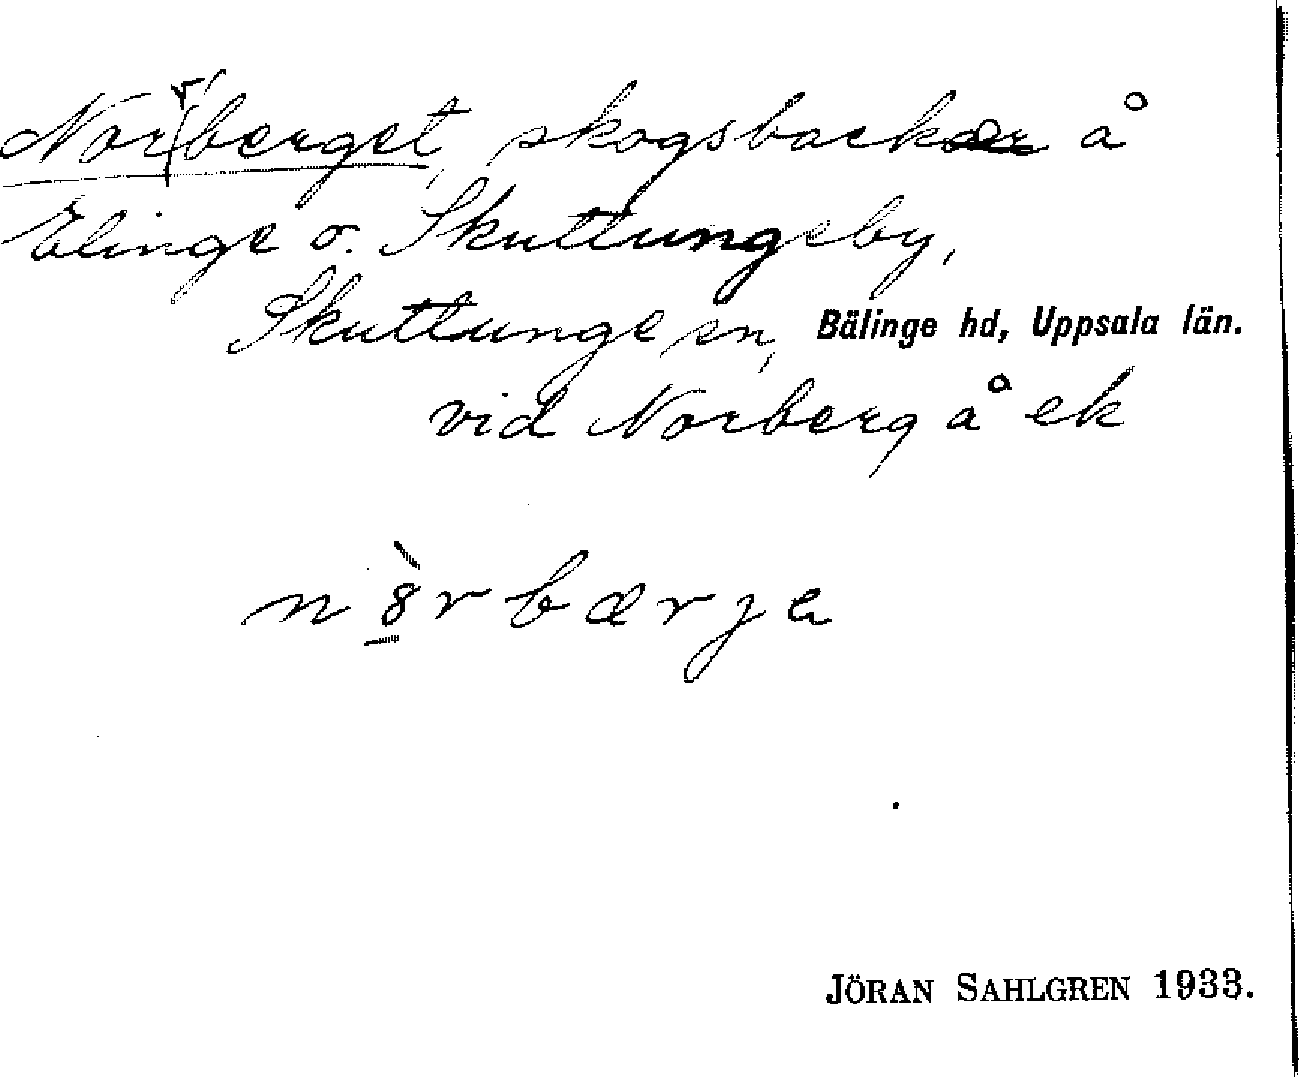 Norrberget, skogsbackar å
Elinge o. Skuttungeby,
Skuttunge sn, Bälinge hd, Uppsala län.
vid Norberg å ek
nòrbærja
JÖRAN SAHLGREN 1933.